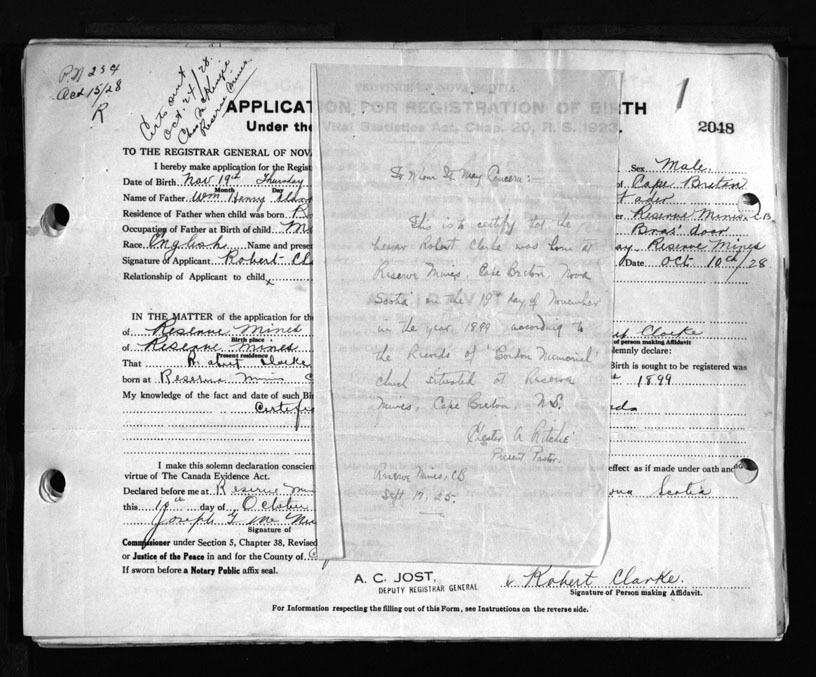 P.N 254
Oct 15/28
R
Certs out
Oct. 24/28.
Chas McKenzie
Reserve Mines
PROVINCE OF NOVA SCOTIA
1
APPLICATION FOR REGISTRATION OF BIRTH
Under the Vital Statistics Act, Chap. 20, R. S. 1923.
2048
TO THE REGISTRAR GENERAL OF NOV
I hereby make application for the Regist
Sex Male
Date of Birth Nov 19th Thursday
Month Day
of Cape Breton
Name of Father Wm Henry
Residence of Father when child was born R
er Reserve Mines C.B
Occupation of Father at Birth of child M
Bras' dOor
Race English Name and presen
ay Reserve Mines
Signature of Applicant Robert Cla
Date Oct 10th/28
Relationship of Applicant to child x
IN THE MATTER of the application for the
of Reserve Mines
Birth place
Clarke
of person making Affidavit
of Reserve Mines
Present residence
lemnly declare:
That Robert Clarke
Birth is sought to be registered was
born at Reserve Mines C
1899
My knowledge of the fact and date of such Bir
Certific
I make this solemn declaration conscien
effect as if made under oath and
virtue of The Canada Evidence Act.
Declared before me at Reserve Min
ova Scotia
this 10th day of October
Joseph
Signature of
Commissioner under Section 5, Chapter 38, Revised
or Justice of the Peace in and for the County of C
If sworn before a Notary Public affix seal.
A. C. JOST,
DEPUTY REGISTRAR GENERAL
Robert Clarke.
Signature of Person making Affidavit.
For Information respecting the filling out of this Form, see Instructions on the reverse side.
To Whom It May Concern:-
This is to certify that the
bearer Robert Clarke was born at
Reserve Mines, Cape Breton, Nova
Scotia on the 19th day of November
in the year 1899 according to
the Records of 'Gordon Memorial'
Church situated at Reserve
Mines, Cape Breton, N.S.
Chester A Ritchie
Present Pastor.
Reserve Mines, CB
Sept. 17, 25.